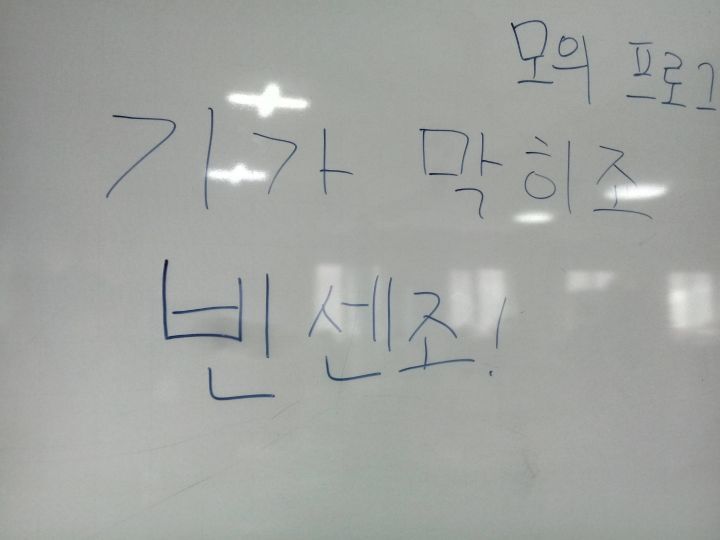 모의 프로그
기가 막히조
빈센조!